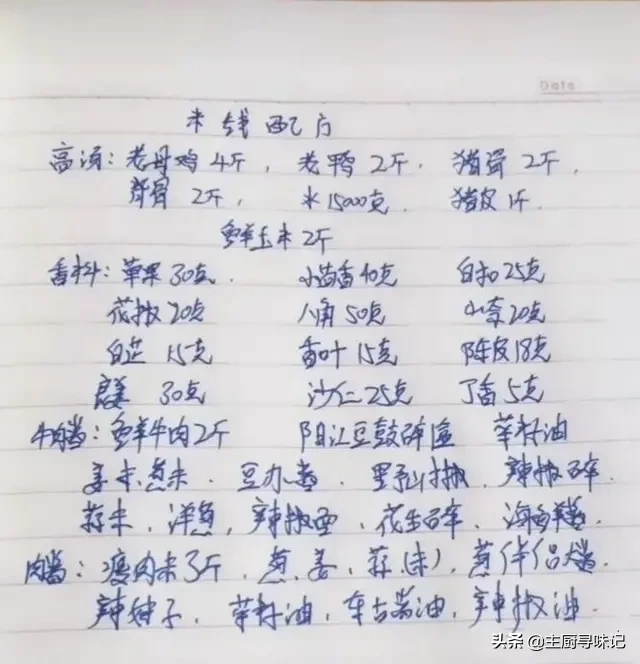 Date
米线配方
高汤：老母鸡4斤，老鸭2斤，猪骨2斤，
脊骨2斤，水15000克，猪皮1斤
鲜玉米2斤
香料：草果30克，小茴香40克 白扣25克
花椒20克 八角50克 山奈20克
白芷15克 香叶15克 陈皮18克
良姜30克 沙仁25克 丁香5克
牛肉酱：鲜牛肉2斤 阳江豆鼓碎 菜籽油
姜末葱末、豆办酱、野山椒、辣椒碎
蒜末、洋葱、辣椒面、花生碎、海鲜酱
肉酱：瘦肉末3斤，葱、姜、蒜(末)，葱伴侣大酱
辣妹子、菜籽油，辣椒油．
头条 @主厨寻味记